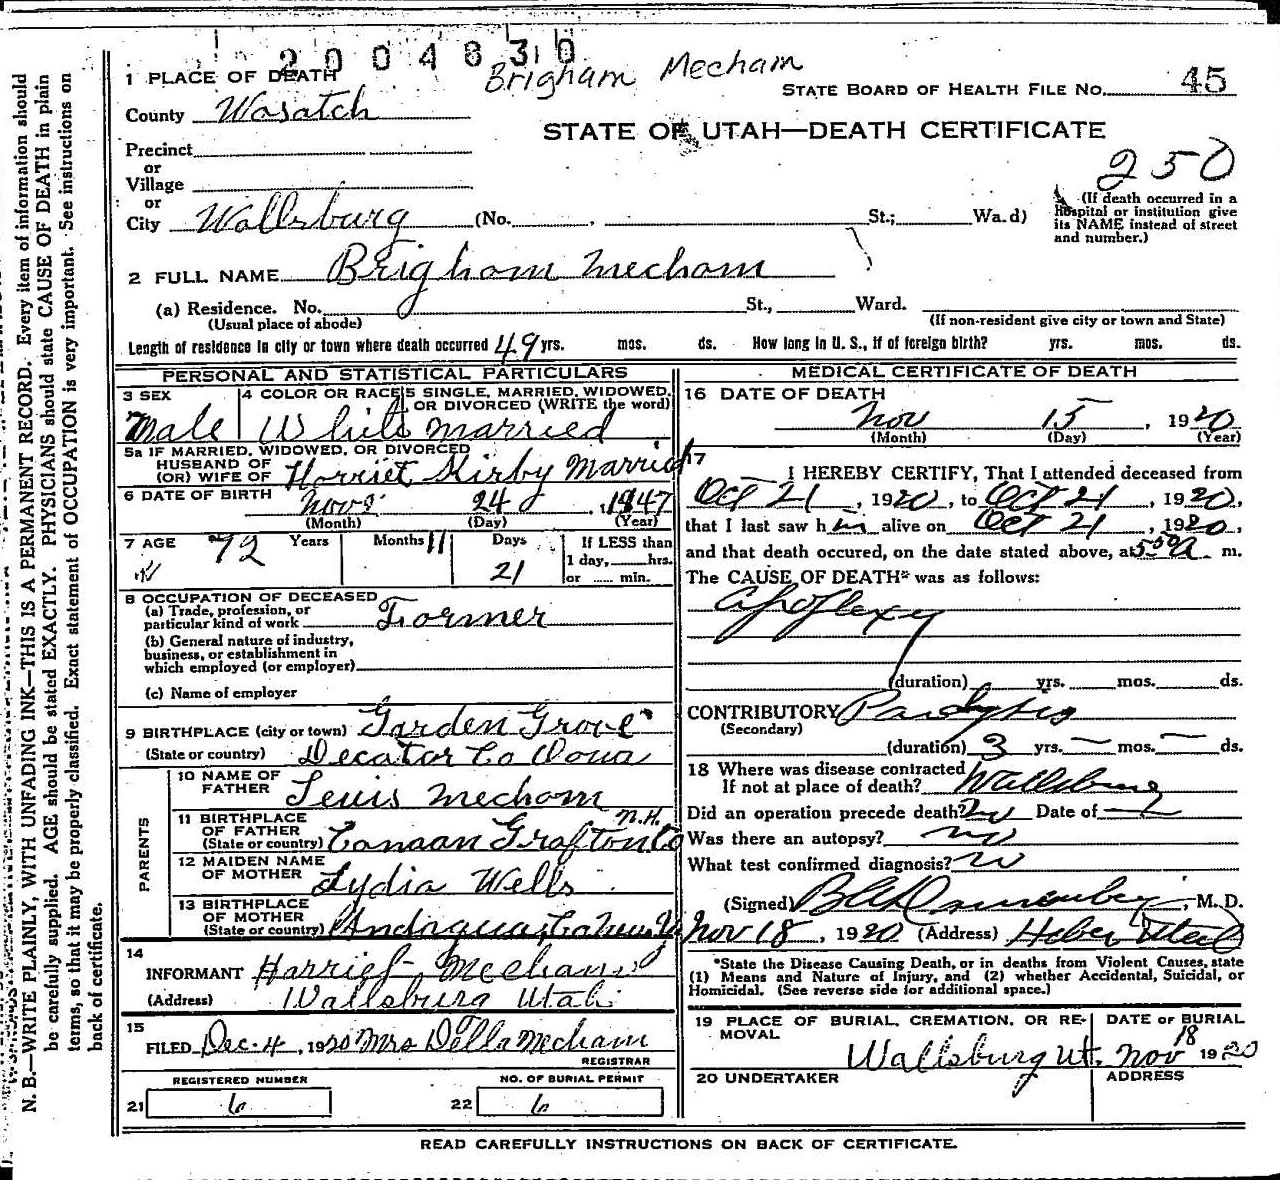 2004830
Brigham Mecham
1 PLACE OF DEATH
STATE BOARD OF HEALTH FILE No. 45
County Wasatch
STATE OF UTAH—DEATH CERTIFICATE
Precinct
or
Village
250
or
City Wallsburg (No. , St.; Wa.d)
(If death occurred in a
hospital or institution give
its NAME instead of street
and number.)
2 FULL NAME Brigham Mecham
(a) Residence. No. St., Ward.
(Usual place of abode) (If non-resident give city or town and State)
Length of residence in city or town where death occurred 49 yrs. mos. ds. How long in U. S., if of foreign birth? yrs. mos. ds.
PERSONAL AND STATISTICAL PARTICULARS
3 SEX 4 COLOR OR RACE 5 SINGLE, MARRIED, WIDOWED,
OR DIVORCED (WRITE the word)
Male White Married
5a IF MARRIED, WIDOWED, OR DIVORCED
HUSBAND OF
(OR) WIFE OF Harriet Kirby Married
6 DATE OF BIRTH Nov 24, 1847
(Month) (Day) (Year)
7 AGE 72 Years Months 11 Days 21
If LESS than
1 day, hrs.
or min.
8 OCCUPATION OF DECEASED
(a) Trade, profession, or
particular kind of work Farmer
(b) General nature of industry,
business, or establishment in
which employed (or employer)
(c) Name of employer
9 BIRTHPLACE (city or town) Garden Grove
(State or country) Decator Co Iowa
PARENTS
10 NAME OF
FATHER Lewis Mecham
11 BIRTHPLACE
OF FATHER N.H.
(State or country) Canaan Grafton Co
12 MAIDEN NAME
OF MOTHER Lydia Wells
13 BIRTHPLACE
OF MOTHER
(State or country)
14
INFORMANT Harriet Mecham
(Address) Wallsburg Utah
15
FILED Dec. 4, 1920 Mrs Della Mecham
REGISTRAR
REGISTERED NUMBER NO. OF BURIAL PERMIT
21 6 22 6
MEDICAL CERTIFICATE OF DEATH
16 DATE OF DEATH
Nov 15, 1920
(Month) (Day) (Year)
17
I HEREBY CERTIFY, That I attended deceased from
Oct 21, 1920, to Oct 21, 1920,
that I last saw him alive on Oct 21, 1920,
and that death occured, on the date stated above, at 5:50 A. m.
The CAUSE OF DEATH* was as follows:
Apoplexy
(duration) yrs. mos. ds.
CONTRIBUTORY Paralysis
(Secondary)
(duration) 3 yrs. — mos. — ds.
18 Where was disease contracted
If not at place of death? Wallsburg
Did an operation precede death? No Date of —
Was there an autopsy? No
What test confirmed diagnosis?
(Signed) , M. D.
Nov 18, 1920 (Address) Heber Utah
*State the Disease Causing Death, or in deaths from Violent Causes, state
(1) Means and Nature of Injury, and (2) whether Accidental, Suicidal, or
Homicidal. (See reverse side for additional space.)
19 PLACE OF BURIAL, CREMATION, OR RE-
MOVAL
DATE OF BURIAL
Wallsburg Ut. Nov 18 1920
20 UNDERTAKER ADDRESS
READ CAREFULLY INSTRUCTIONS ON BACK OF CERTIFICATE.
N. B.—WRITE PLAINLY, WITH UNFADING INK—THIS IS A PERMANENT RECORD. Every item of information should
be carefully supplied. AGE should be stated EXACTLY. PHYSICIANS should state CAUSE OF DEATH in plain
terms, so that it may be properly classified. Exact statement of OCCUPATION is very important. See instructions on
back of certificate.